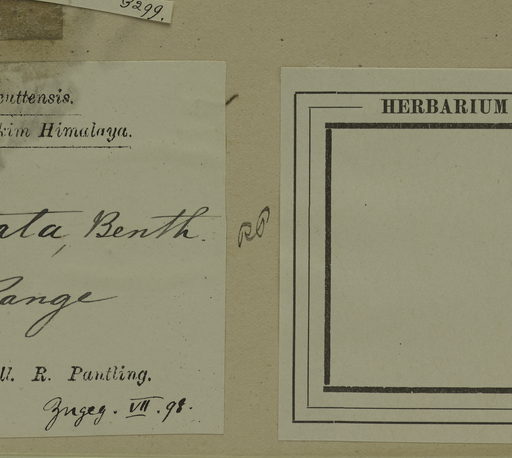 3299.
cuttensis.
kim Himalaya.
ata, Benth.
Range
ll. R. Pantling.
Zugeg. VII. 98.
HERBARIUM